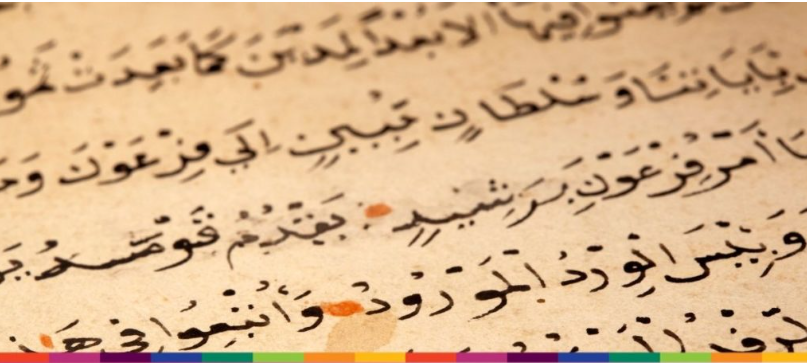 فِيهَا الَا بُعْدًا لِمَدْيَنَ كَمَا بَعِدَتْ ثَمُو
بِآيَاتِنَا وَسُلْطَانٍ مُبِينٍ اِلَى فِرْعَوْنَ وَ
أَمْرُ فِرْعَوْنَ بِرَشِيدٍ يَقْدُمُ قَوْمَهُ
وَبِئْسَ الْوِرْدُ الْمَوْرُودُ وَأُتْبِعُوا فِي